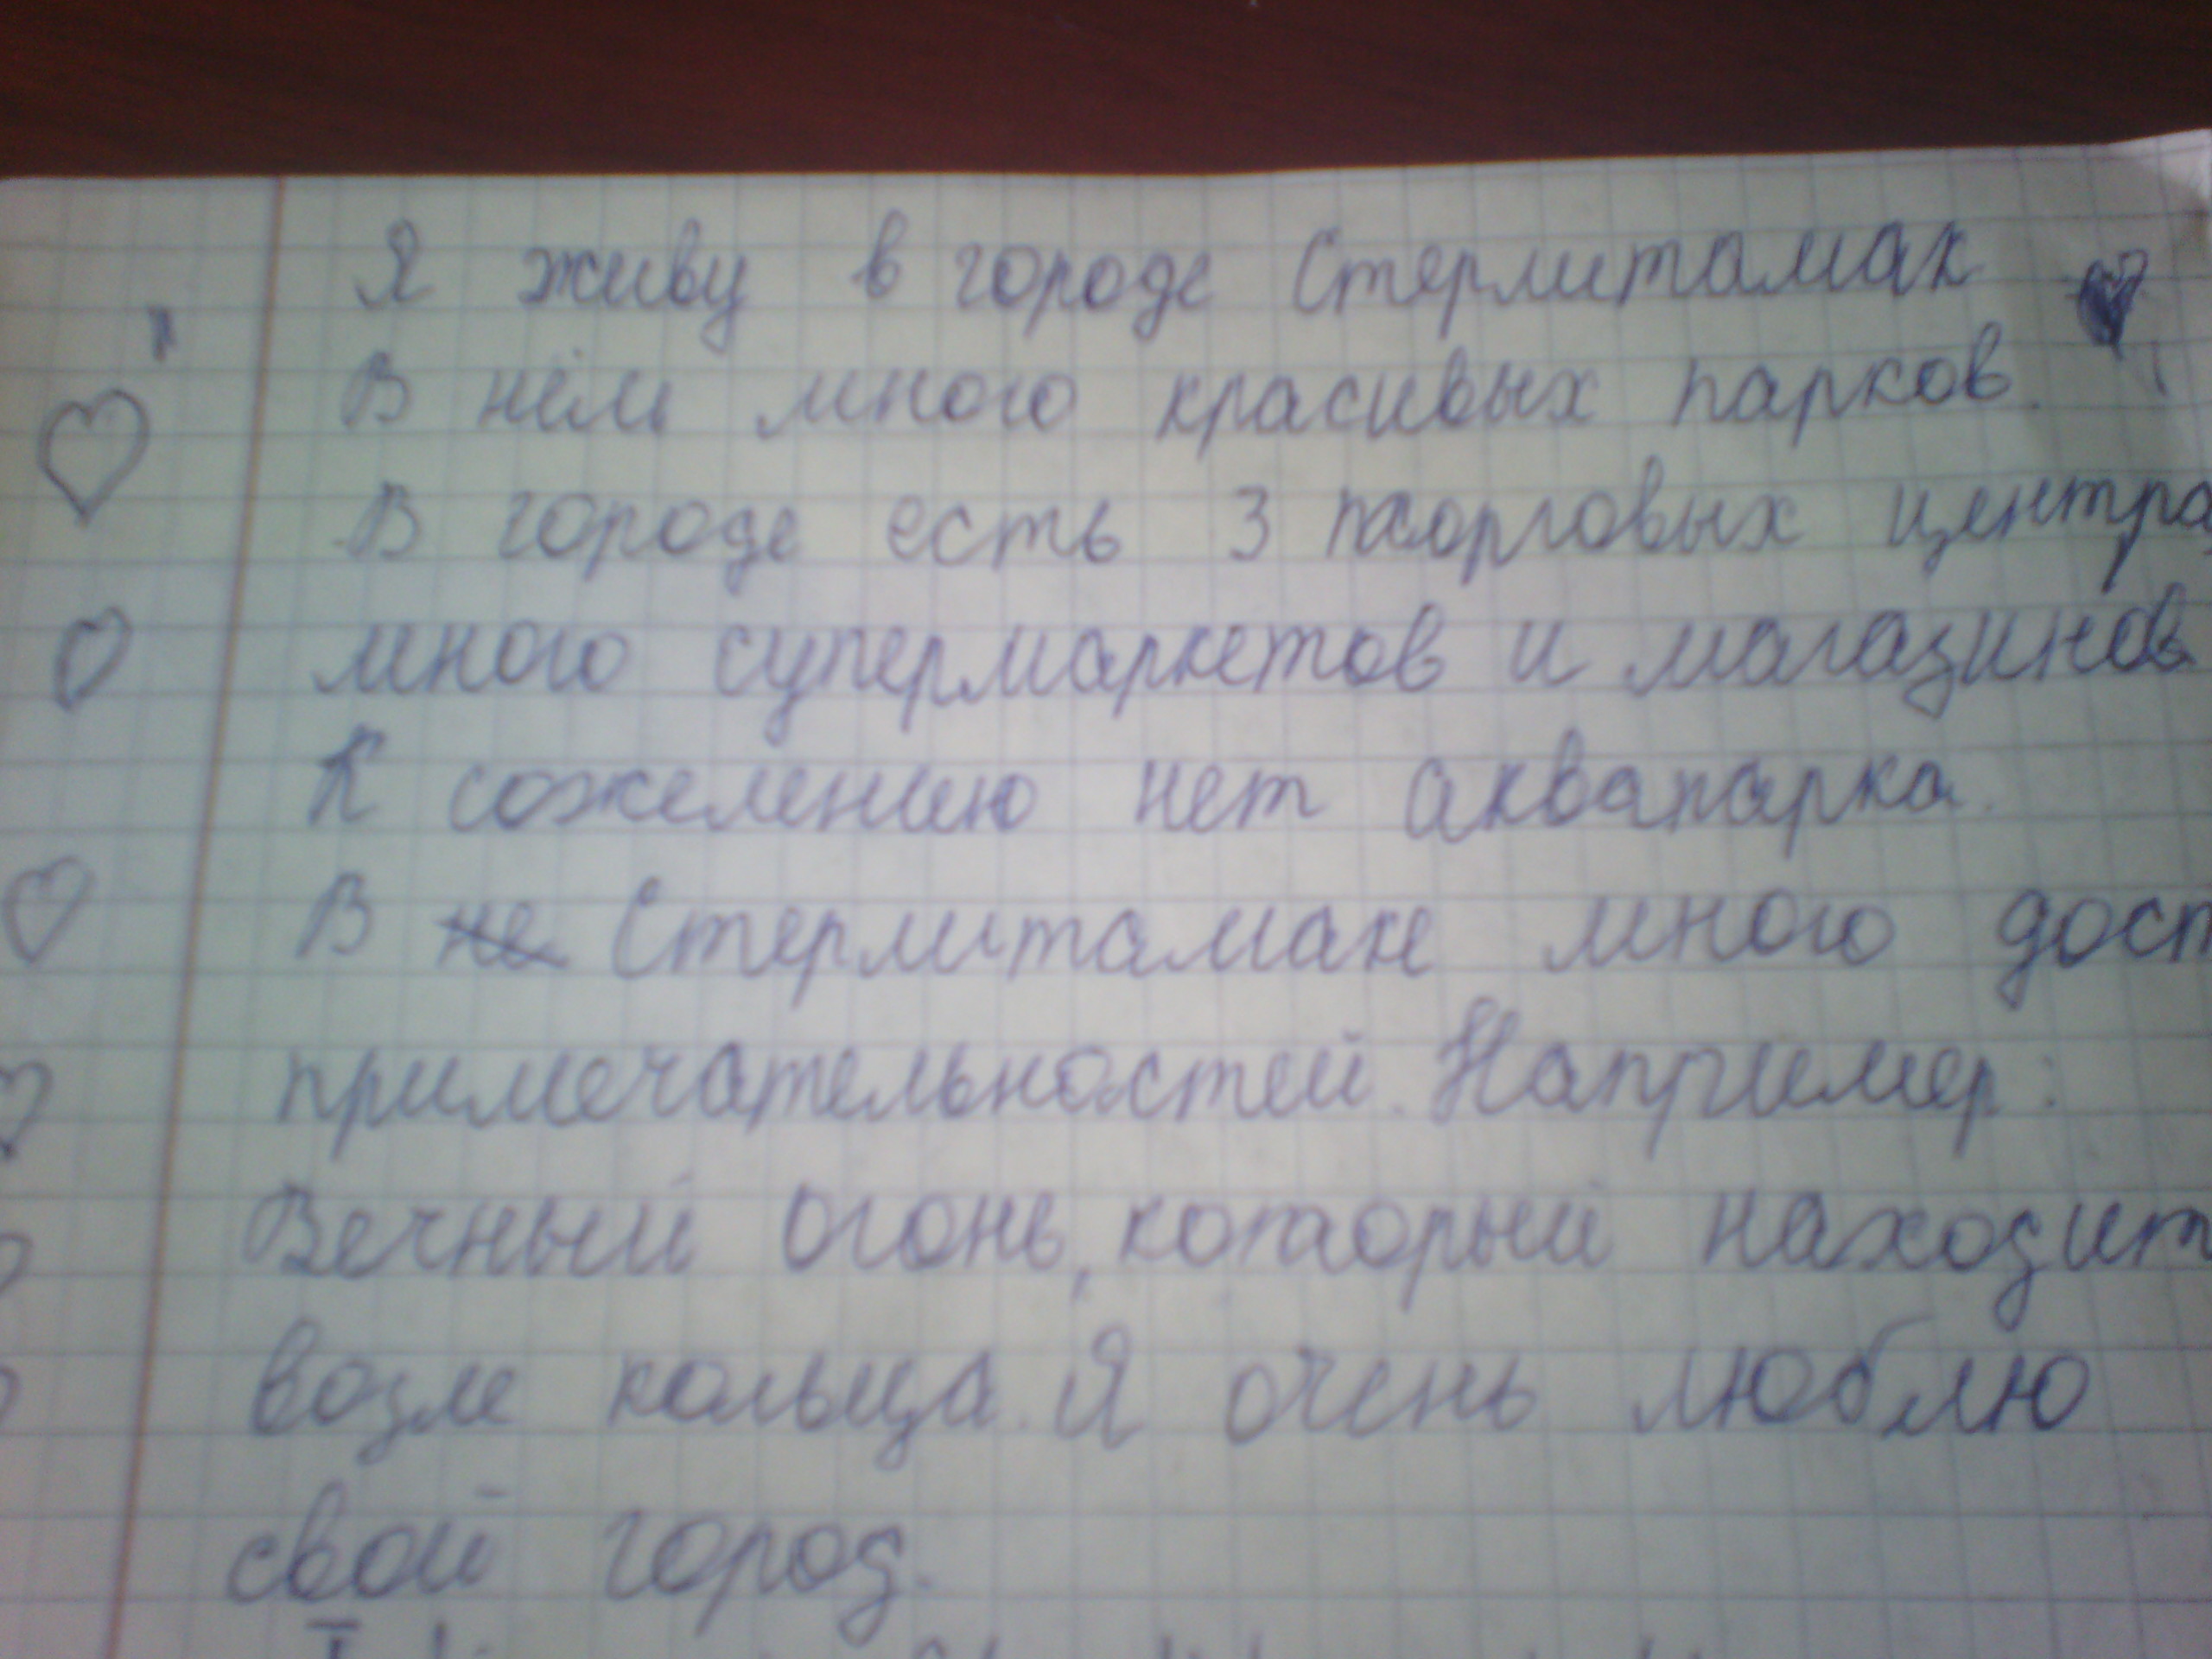 Я живу в городе Стерлитамак
В нём много красивых парков.
В городе есть 3 торговых центра,
много супермаркетов и магазинов
К сожелению нет аквапарка.
В не Стерлитамаке много дост
примечательностей. Например:
Вечный огонь, который находит
возле кольца. Я очень люблю
свой город.